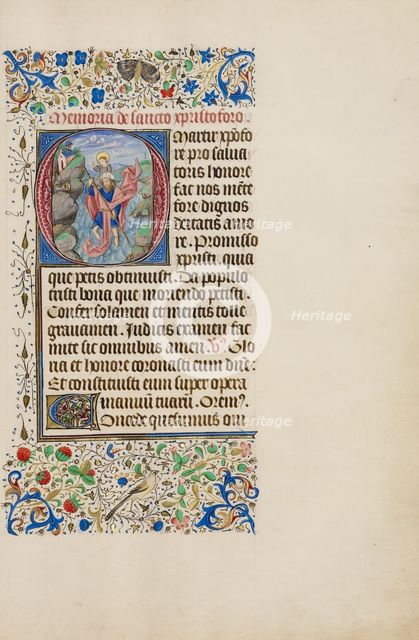 Memoria de sancto xpristoforo
Martir xpofo
re pro salua
toris honore
fac nos mẽte
fore dignos
deitatis amo
re. Promisso
xpristi quia
que petis obtinuisti. Da populo
tristi bona que moriendo petisti.
Confer solamen et mentis tolle
grauamen. Judicis examen fac
mite sit omnibus amen. V Glo
ria et honore coronasti eum dñe:
Et constituisti eum super opera
manuum tuarũ. Oremꝰ
Concede quesumus om
Heritage
Heritage
Heritage
Heritage